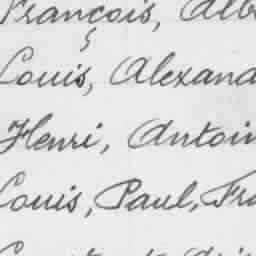 François, Alb
Louis, Alexand
Henri, Antoin
Louis, Paul, Fra